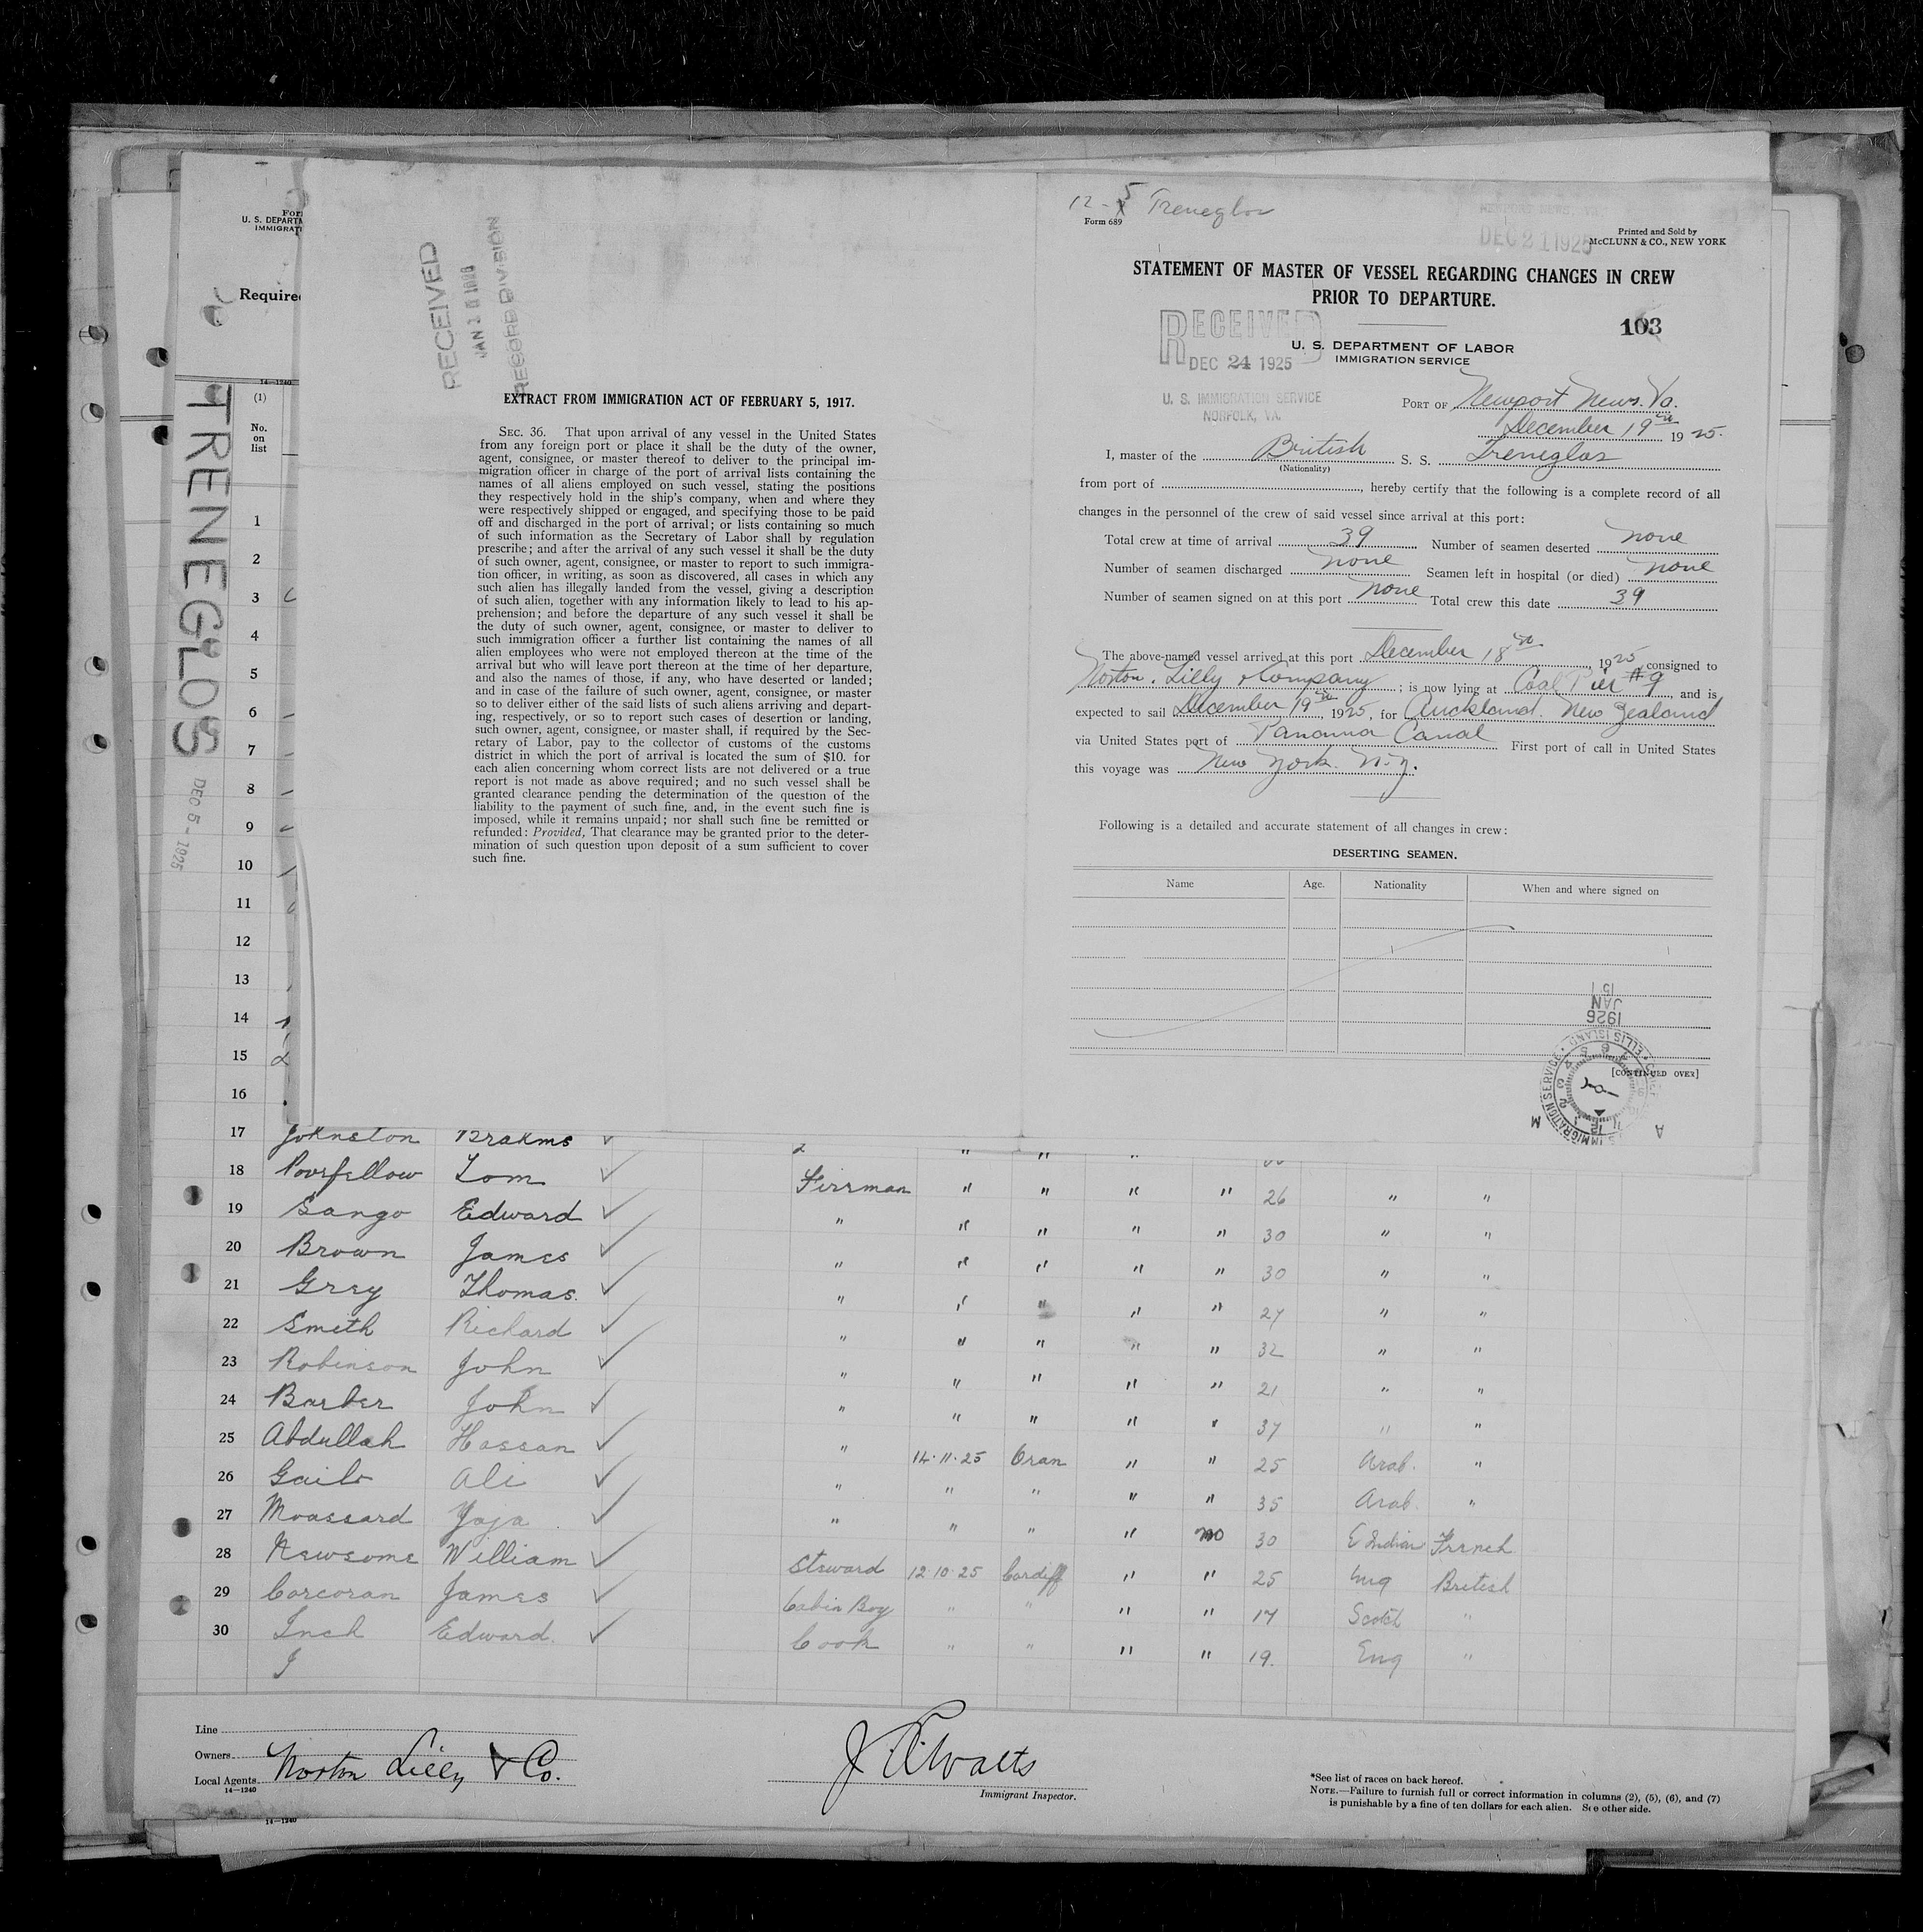 For
U. S. DEPARTM
IMMIGRATI
Require
14—1240
(1)
No.
on
list
1
2
3
4
5
6
7
8
9
10
11
12
13
14
15
16
TRENEGLOS
DEC 5 - 1925
RECEIVED
RECORD DIVISION
EXTRACT FROM IMMIGRATION ACT OF FEBRUARY 5, 1917.
SEC. 36. That upon arrival of any vessel in the United States
from any foreign port or place it shall be the duty of the owner,
agent, consignee, or master thereof to deliver to the principal im-
migration officer in charge of the port of arrival lists containing the
names of all aliens employed on such vessel, stating the positions
they respectively hold in the ship's company, when and where they
were respectively shipped or engaged, and specifying those to be paid
off and discharged in the port of arrival; or lists containing so much
of such information as the Secretary of Labor shall by regulation
prescribe; and after the arrival of any such vessel it shall be the duty
of such owner, agent, consignee, or master to report to such immigra-
tion officer, in writing, as soon as discovered, all cases in which any
such alien has illegally landed from the vessel, giving a description
of such alien, together with any information likely to lead to his ap-
prehension; and before the departure of any such vessel it shall be
the duty of such owner, agent, consignee, or master to deliver to
such immigration officer a further list containing the names of all
alien employees who were not employed thereon at the time of the
arrival but who will leave port thereon at the time of her departure,
and also the names of those, if any, who have deserted or landed;
and in case of the failure of such owner, agent, consignee, or master
so to deliver either of the said lists of such aliens arriving and depart-
ing, respectively, or so to report such cases of desertion or landing,
such owner, agent, consignee, or master shall, if required by the Sec-
retary of Labor, pay to the collector of customs of the customs
district in which the port of arrival is located the sum of $10. for
each alien concerning whom correct lists are not delivered or a true
report is not made as above required; and no such vessel shall be
granted clearance pending the determination of the question of the
liability to the payment of such fine, and, in the event such fine is
imposed, while it remains unpaid; nor shall such fine be remitted or
refunded: Provided, That clearance may be granted prior to the deter-
mination of such question upon deposit of a sum sufficient to cover
such fine.
12-5 Treneglos
Form 689
DEC 21 1925
Printed and Sold by
McCLUNN & CO., NEW YORK
STATEMENT OF MASTER OF VESSEL REGARDING CHANGES IN CREW
PRIOR TO DEPARTURE.
103
RECEIVED
DEC 24 1925
U. S. IMMIGRATION SERVICE
NORFOLK, VA.
U. S. DEPARTMENT OF LABOR
IMMIGRATION SERVICE
PORT OF Newport News. Va.
December 19th 1925.
I, master of the British S. S. Treneglos
(Nationality)
from port of , hereby certify that the following is a complete record of all
changes in the personnel of the crew of said vessel since arrival at this port:
Total crew at time of arrival 39 Number of seamen deserted none
Number of seamen discharged none Seamen left in hospital (or died) none
Number of seamen signed on at this port none Total crew this date 39
The above-named vessel arrived at this port December 18th, 1925 consigned to
Norton. Lilly & Company; is now lying at Coal Pier #9, and is
expected to sail December 19th, 1925, for Auckland. New Zealand
via United States port of Panama Canal First port of call in United States
this voyage was New York. N.Y.
Following is a detailed and accurate statement of all changes in crew:
DESERTING SEAMEN.
Name Age. Nationality When and where signed on
[CONTINUED OVER]
1926
JAN
15
U.S. IMMIGRATION SERVICE • ELLIS ISLAND •
A M
17 Johnston Brakms ✓ " " "
18 Poorfellow Tom ✓ Firrman " " " " 26 " "
19 Sango Edward ✓ " " " " " 30 " "
20 Brown James ✓ " " " " " 30 " "
21 Grey Thomas. ✓ " " " " " 27 " "
22 Smith Richard ✓ " " " " " 32 " "
23 Robinson John ✓ " " " " " 21 " "
24 Barber John ✓ " " " " " 37 " "
25 Abdullah Hassan ✓ " 14·11·25 Oran " " 25 Arab. "
26 Gailo Ali ✓ " " " " " 35 Arab. "
27 Moassard Yaja ✓ " " " " no 30 E Indian French
28 Newsome William ✓ Steward 12·10·25 Cardiff " " 25 Eng British
29 Corcoran James ✓ Cabin Boy " " " " 17 Scotch "
30 Inch Edward. ✓ Cook " " " " 19. Eng "
Line
Owners
Local Agents Norton Lilly & Co.
14—1240
Immigrant Inspector.
*See list of races on back hereof.
NOTE.—Failure to furnish full or correct information in columns (2), (5), (6), and (7)
is punishable by a fine of ten dollars for each alien. See other side.
14—1240